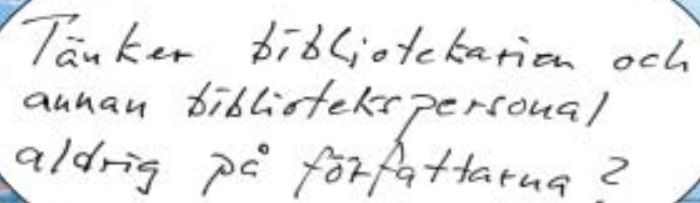 Tänker bibliotekarien och
annan bibliotekspersonal
aldrig på författarna?